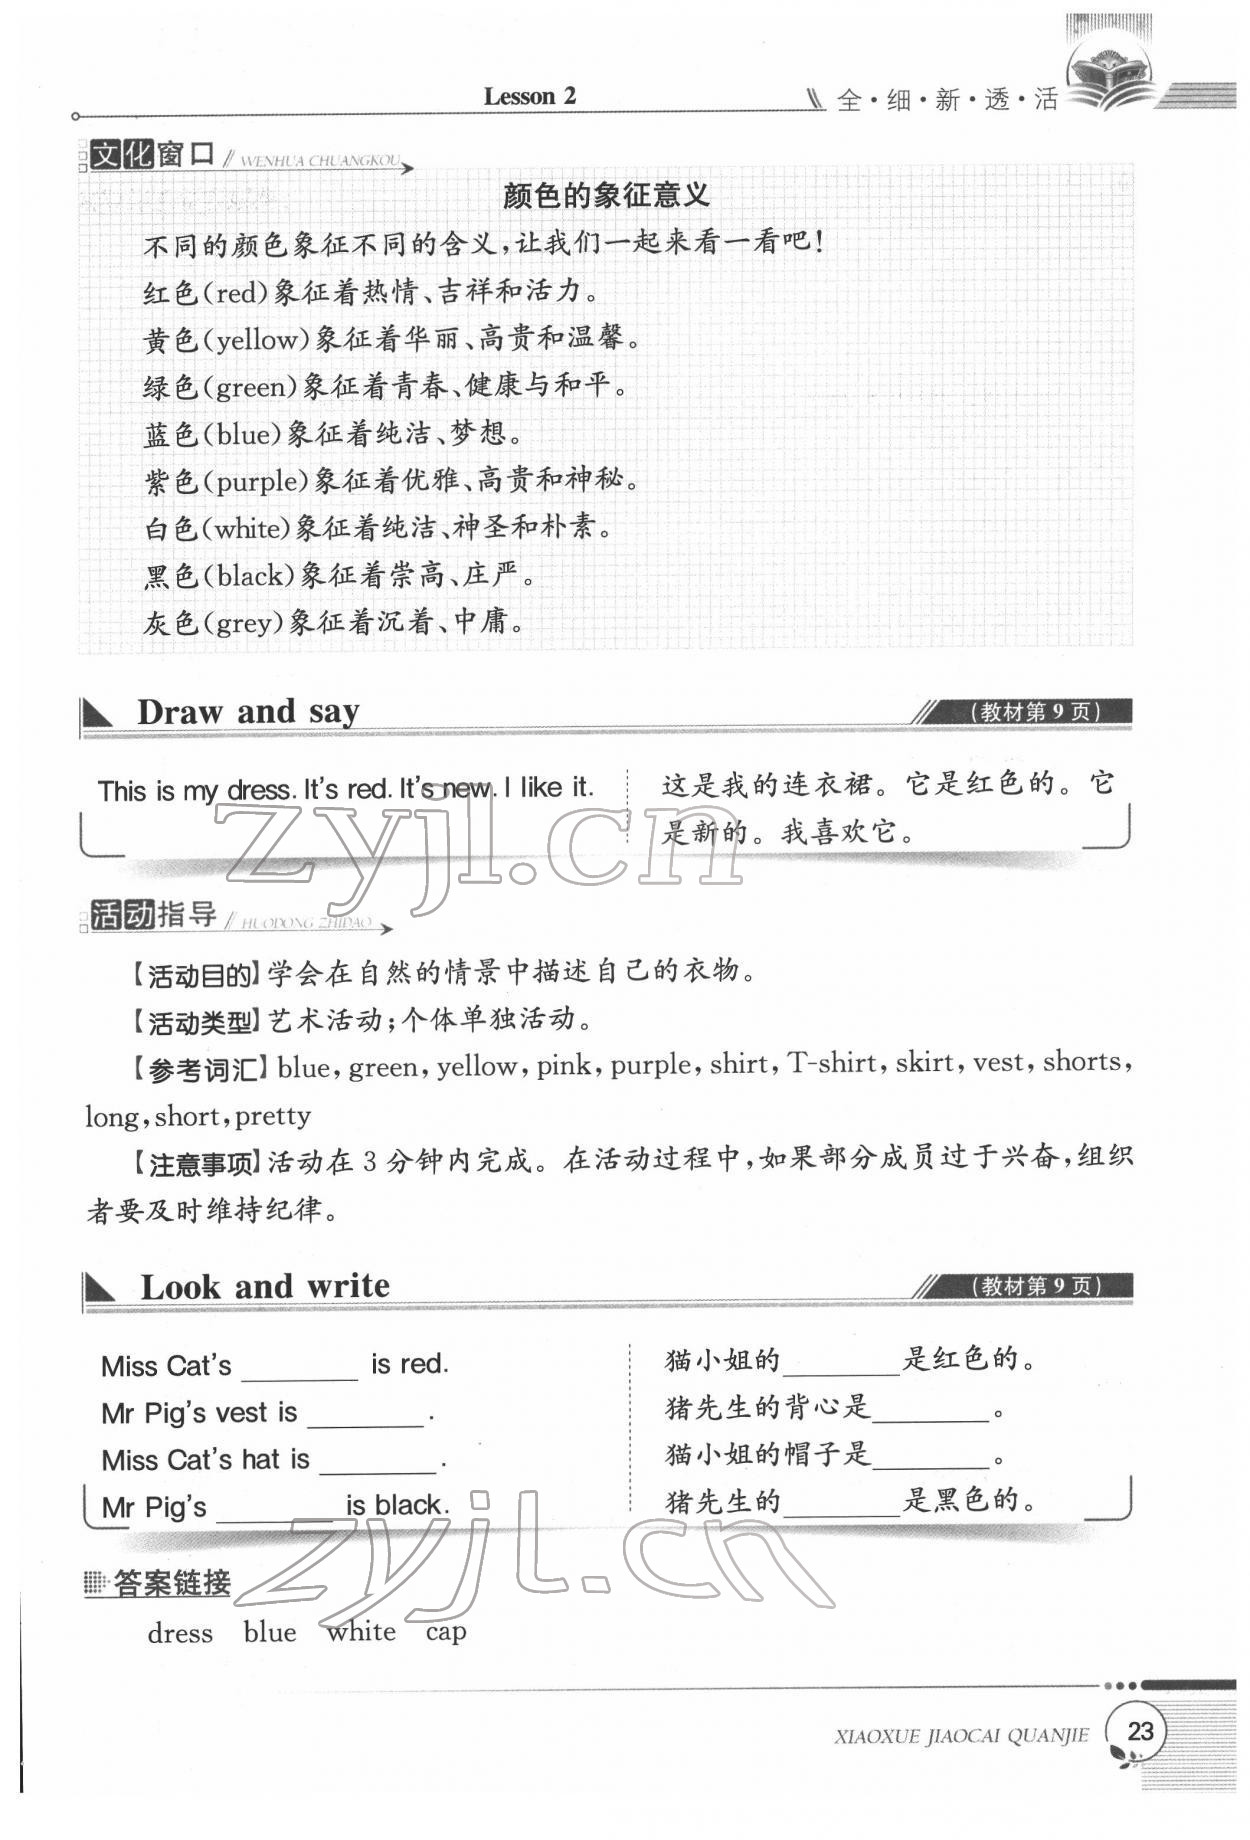 Lesson 2
全·细·新·透·活
文化窗口 WENHUA CHUANGKOU
颜色的象征意义
不同的颜色象征不同的含义,让我们一起来看一看吧!
红色(red)象征着热情、吉祥和活力。
黄色(yellow)象征着华丽、高贵和温馨。
绿色(green)象征着青春、健康与和平。
蓝色(blue)象征着纯洁、梦想。
紫色(purple)象征着优雅、高贵和神秘。
白色(white)象征着纯洁、神圣和朴素。
黑色(black)象征着崇高、庄严。
灰色(grey)象征着沉着、中庸。
Draw and say
(教材第9页)
This is my dress. It's red. It's new. I like it.
这是我的连衣裙。它是红色的。它
是新的。我喜欢它。
zyjl.cn
活动指导 HUODONG ZHIDAO
【活动目的】学会在自然的情景中描述自己的衣物。
【活动类型】艺术活动;个体单独活动。
【参考词汇】blue, green, yellow, pink, purple, shirt, T-shirt, skirt, vest, shorts,
long, short, pretty
【注意事项】活动在3分钟内完成。在活动过程中,如果部分成员过于兴奋,组织
者要及时维持纪律。
Look and write
(教材第9页)
Miss Cat's ________ is red.
Mr Pig's vest is ________.
Miss Cat's hat is ________.
Mr Pig's ________ is black.
猫小姐的________是红色的。
猪先生的背心是________。
猫小姐的帽子是________。
猪先生的________是黑色的。
zyjl.cn
答案链接
dress blue white cap
XIAOXUE JIAOCAI QUANJIE
23